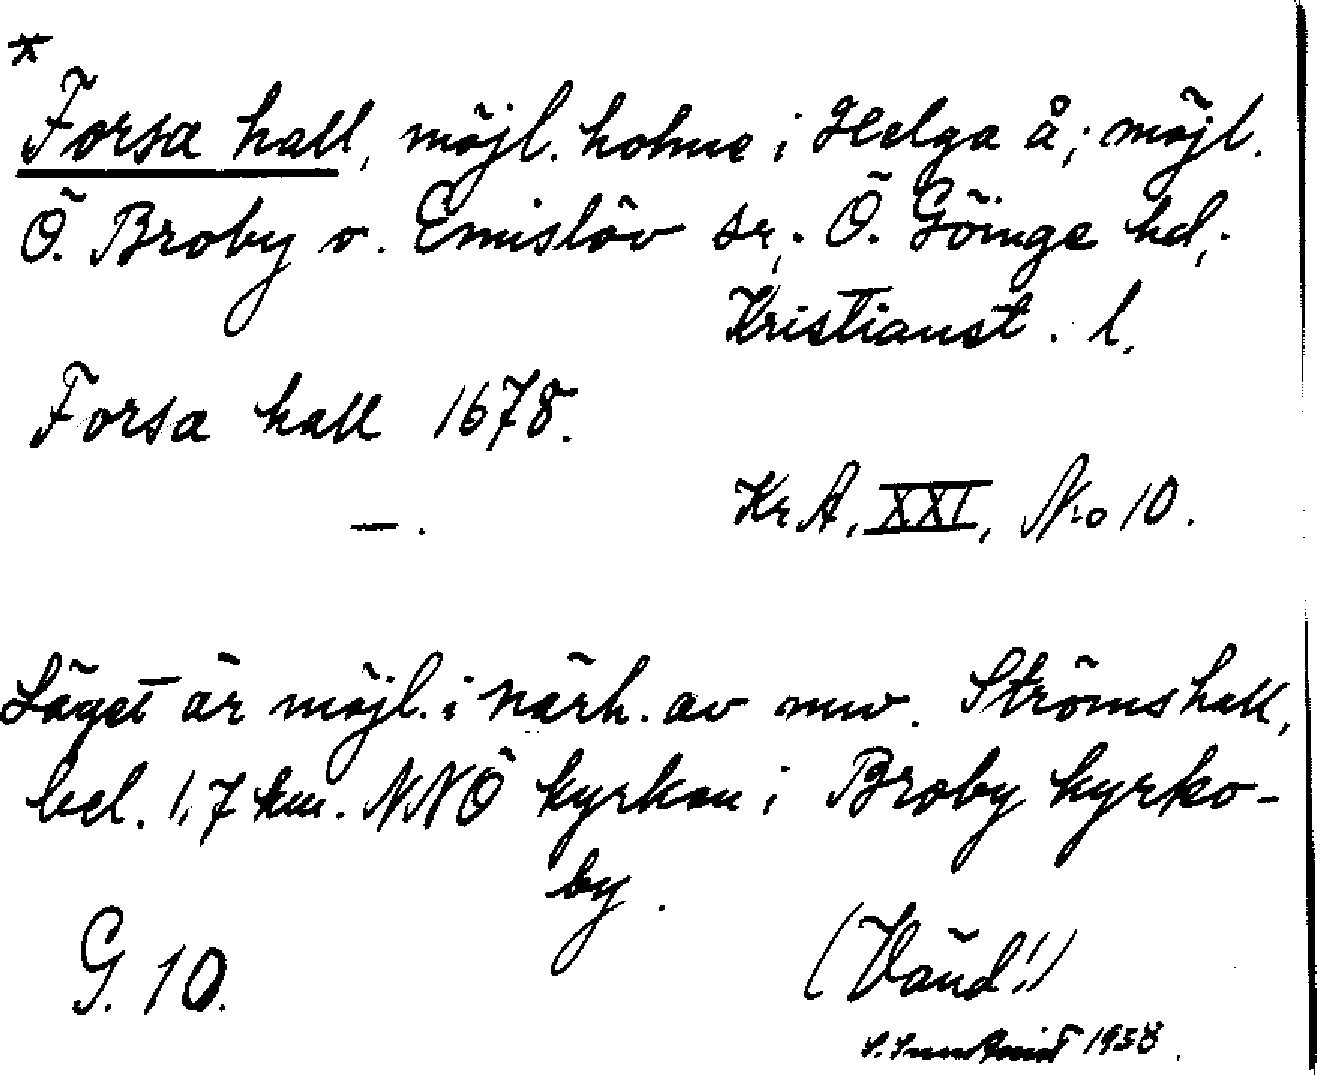 *
Forsa hall, möjl. holme i Helga å; möjl.
Ö. Broby o. Emislöv sr; Ö. Göinge hd;
Kristianst. l.
Forsa hall 1678.
—. KrA, XXI, No 10.
Läget är möjl. i närh. av nuv. Strömshall,
bel. 1,7 km. NNÖ kyrkan i Broby kyrko-
by.
G. 10. (Vänd!)
1958.